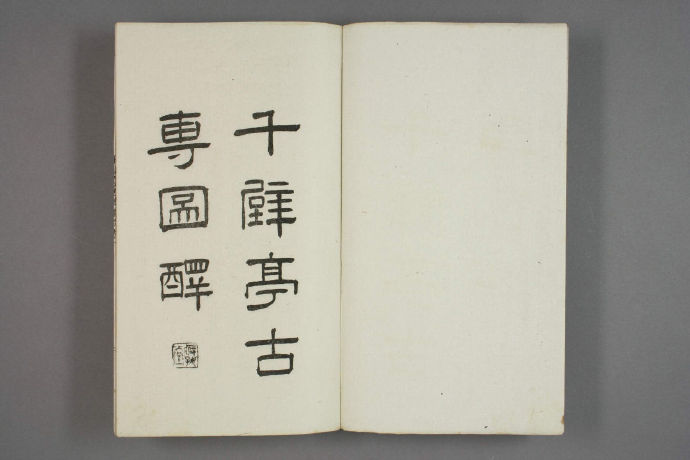 千甓亭古
專圖釋